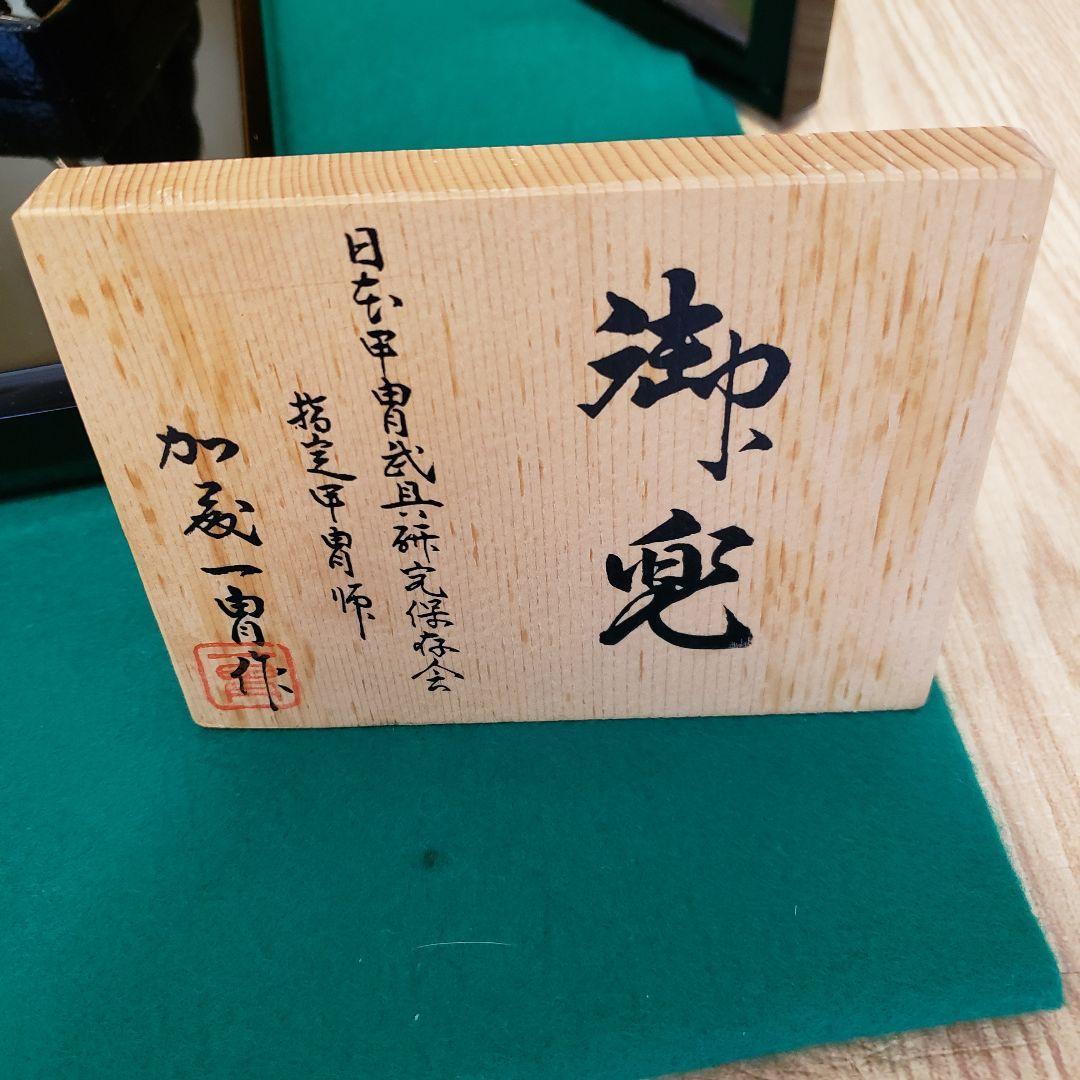 御兜
日本甲冑武具研究保存会
指定甲冑師
加藏一冑作